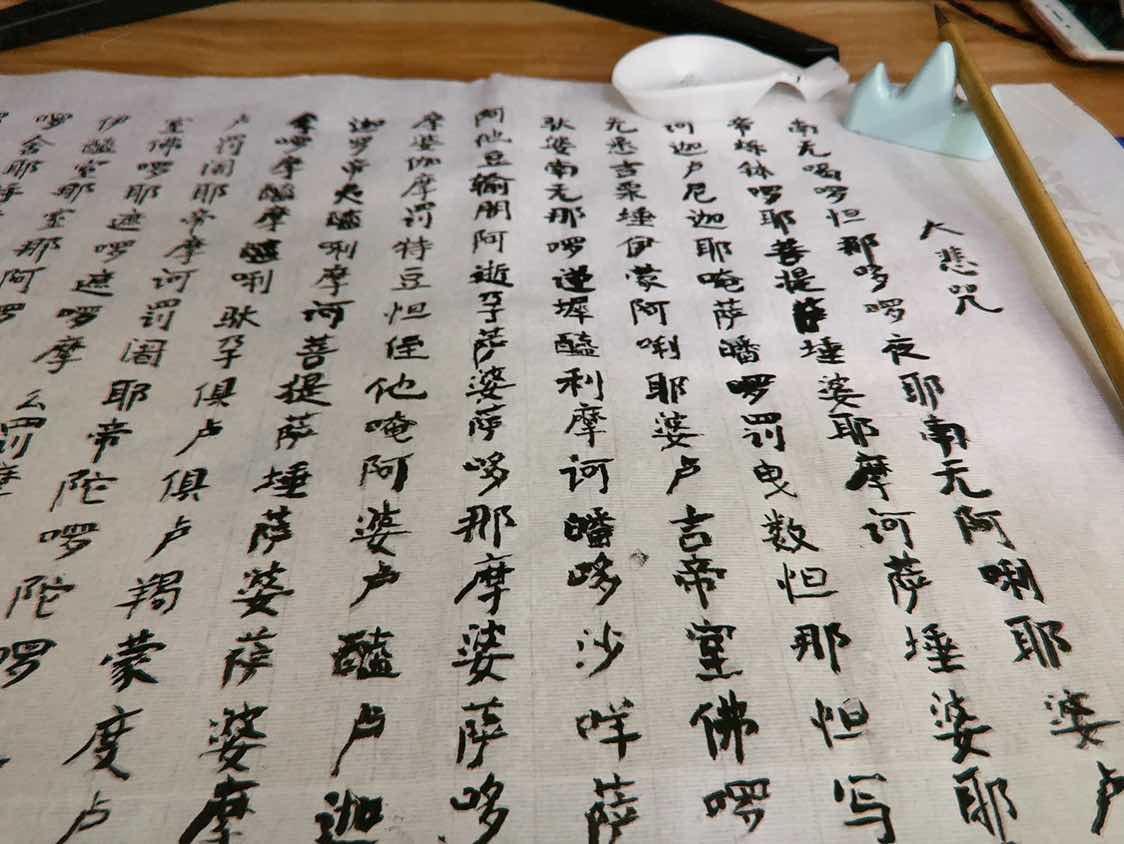 大悲咒
南无喝啰怛那哆啰夜耶南无阿唎耶婆卢
帝烁钵啰耶菩提萨埵婆耶摩诃萨埵婆耶
诃迦卢尼迦耶唵萨皤啰罚曳数怛那怛写
无悉吉栗埵伊蒙阿唎耶婆卢吉帝室佛啰
驮婆南无那啰谨墀醯利摩诃皤哆沙咩萨
阿他豆输朋阿逝孕萨婆萨哆那摩婆萨哆
摩婆伽摩罚特豆怛侄他唵阿婆卢醯卢迦
迦罗帝夷醯唎摩诃菩提萨埵萨婆萨婆摩
摩啰摩醯摩醯唎驮孕俱卢俱卢羯蒙度卢
卢罚阇耶帝摩诃罚阇耶帝陀啰陀啰
室佛啰耶遮啰遮啰摩么罚摩
伊醯室那室那阿啰
啰舍耶呼